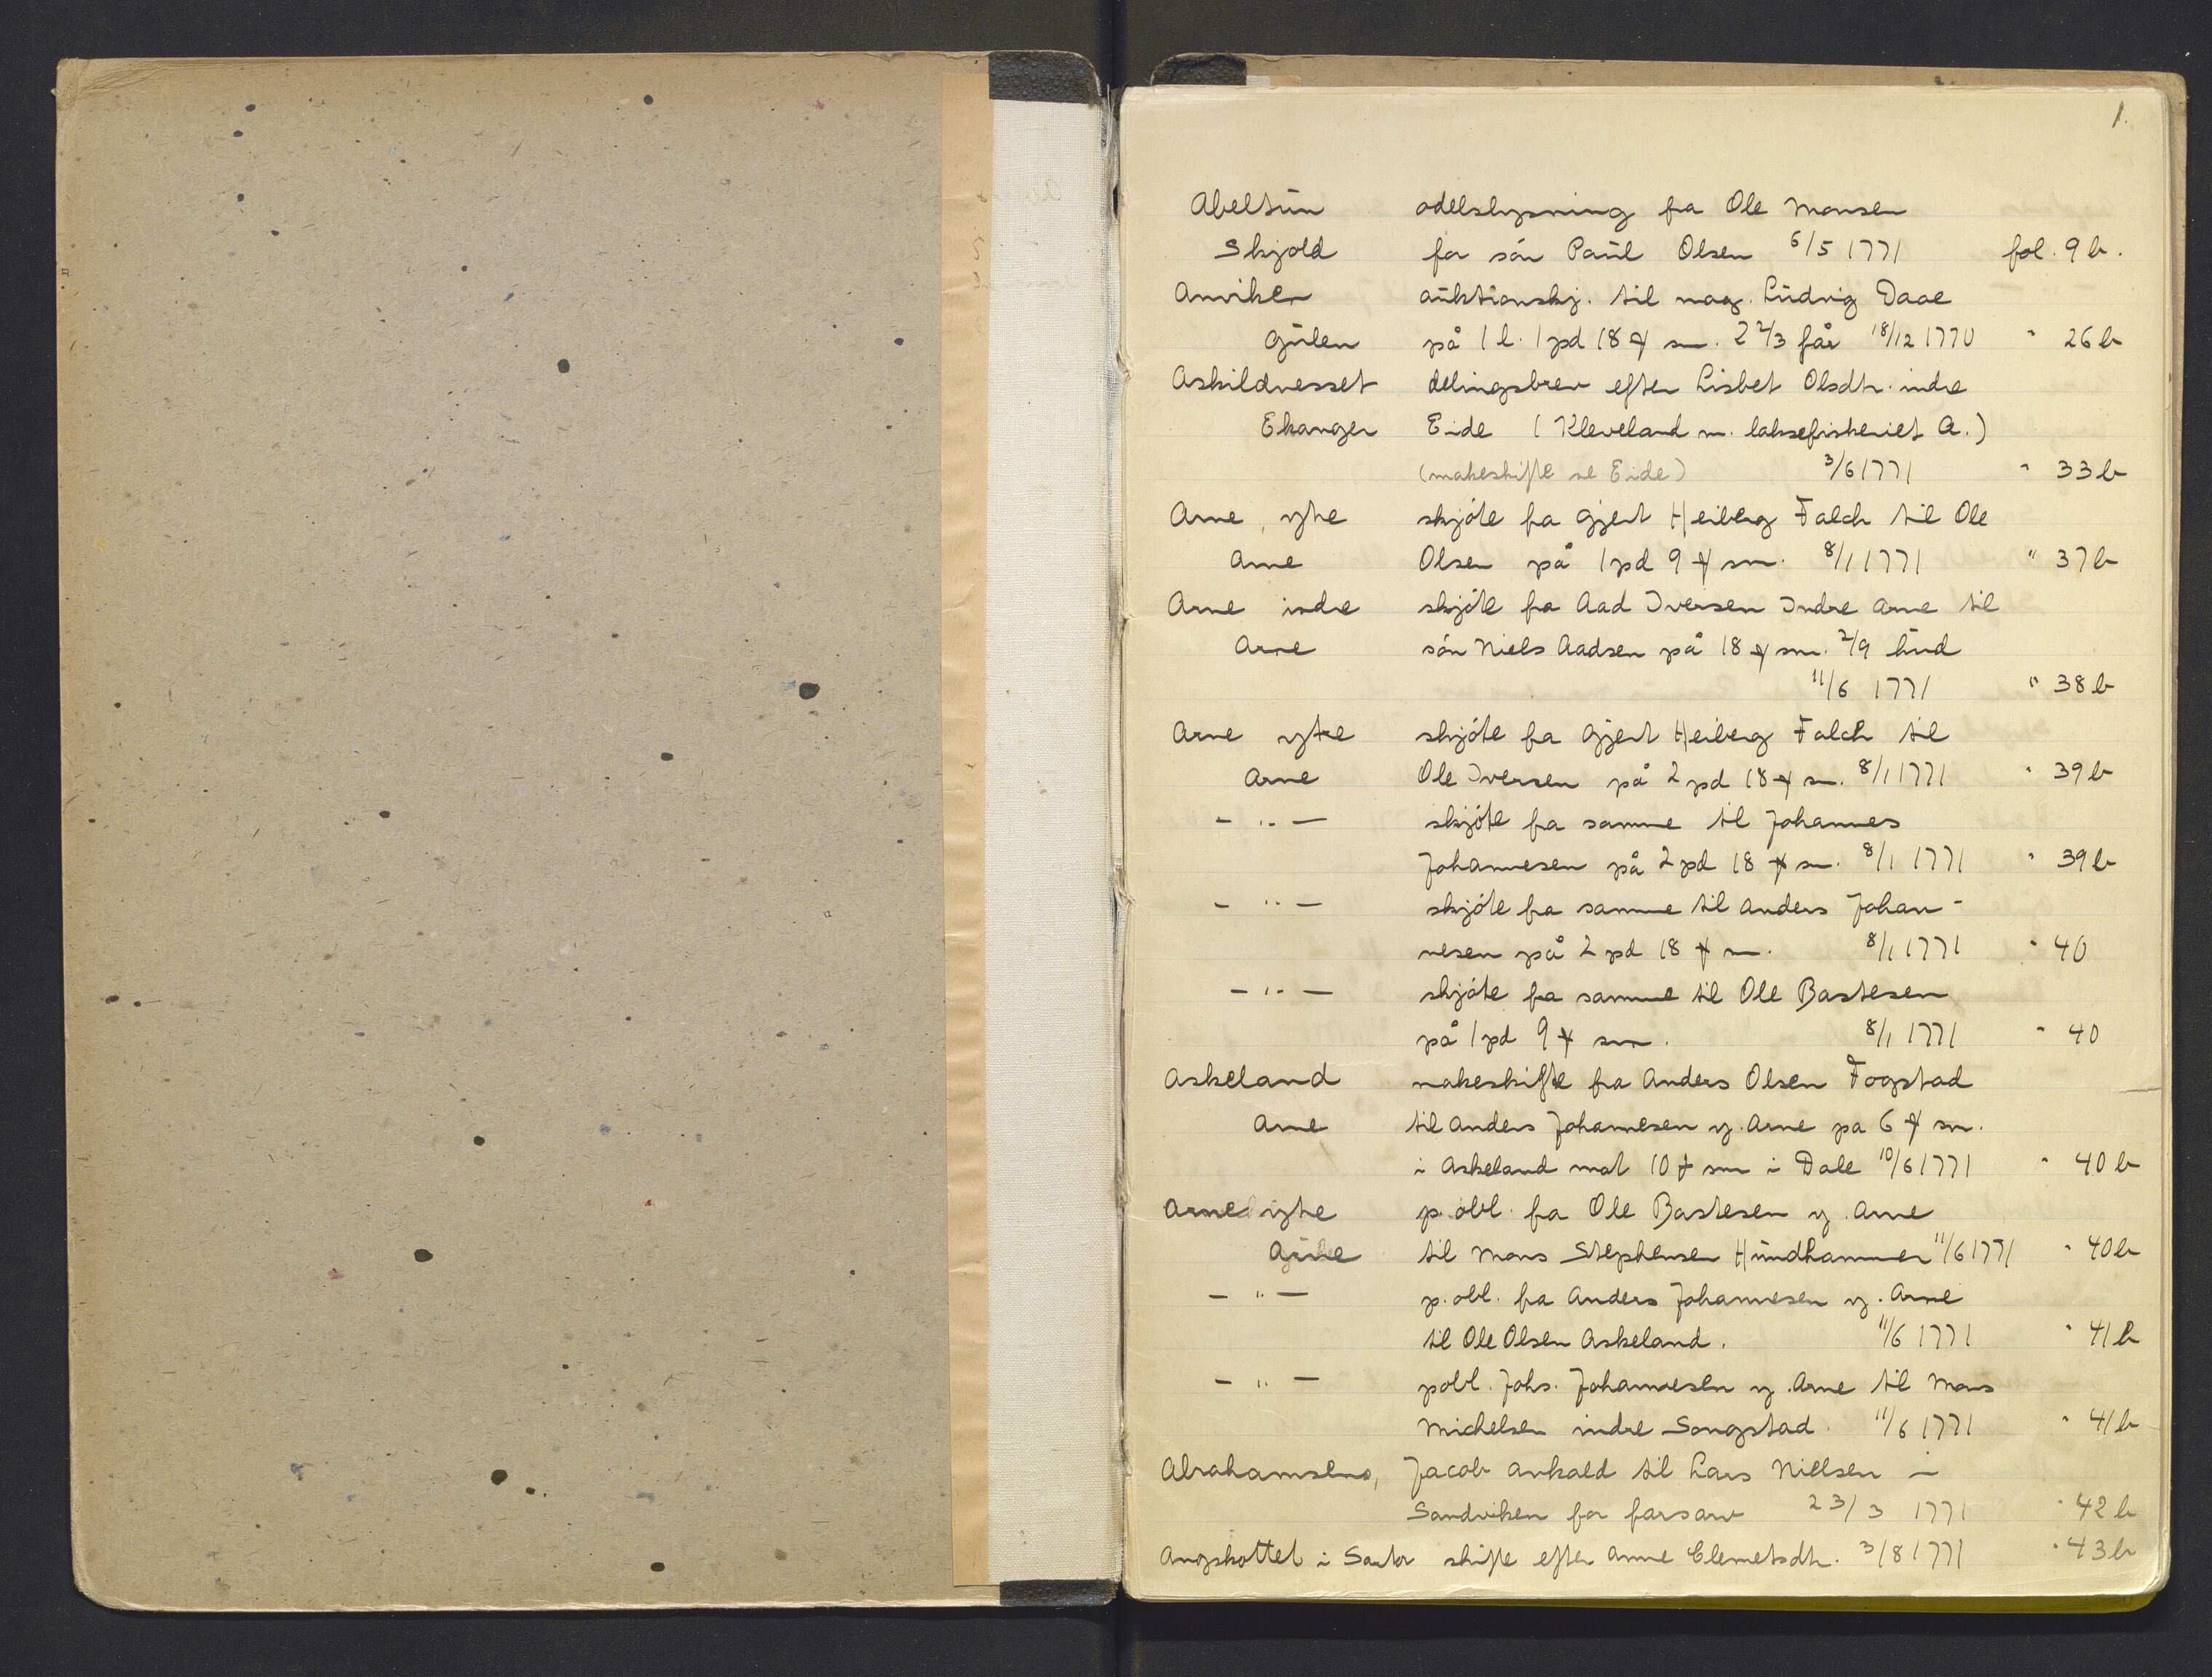 1.
Abeltun odelslysning fra Ole Monsen
Skjold for søn Paul Olsen 6/5 1771 fol. 9 b.
Anviken auktionskj. til mag. Ludvig Daae
Gulen på 1 l. 1 pd 18 ℔ sm. 2 2/3 får 18/12 1770 " 26 b
Askildnesset delingsbrev efter Lisbet Olsdtr. indre
Ekanger Eide (Kleveland m. laksefiskeriet A.)
(makeskifte se Eide) 3/6 1771 " 33 b
Arne, ytre skjøte fra Gjert Heiberg Falch til Ole
Arne Olsen på 1 pd 9 ℔ sm. 8/1 1771 " 37 b
Arne indre skjøte fra Aad Iversen Indre Arne til
Arne søn Niels Aadsen på 18 ℔ sm. 2/9 hud
11/6 1771 " 38 b
Arne ytre skjøte fra Gjert Heiberg Falch til
Arne Ole Iversen på 2 pd 18 ℔ sm. 8/1 1771 " 39 b
— " — skjøte fra samme til Johannes
Johannesen på 2 pd 18 ℔ sm. 8/1 1771 " 39 b
— " — skjøte fra samme til Anders Johan-
nesen på 2 pd 18 ℔ sm. 8/1 1771 " 40
— " — skjøte fra samme til Ole Bastesen
på 1 pd 9 ℔ sm. 8/1 1771 " 40
Askeland makeskifte fra Anders Olsen Fogstad
Arne til Anders Johannesen y. Arne pa 6 ℔ sm.
i Askeland mot 10 ℔ sm i Dale 10/6 1771 " 40 b
Arne ytre p. obl. fra Ole Bastesen y. Arne
til Mons Stephensen Hundhammer 11/6 1771 " 40 b
— " — p. obl. fra Anders Johannesen y. Arne
til Ole Olsen Askeland. 11/6 1771 " 41 b
— " — pobl. Johs. Johannesen y. Arne til Mons
Michelsen indre Songstad. 11/6 1771 " 41 b
Abrahamsens, Jacob avkald til Lars Nielsen i
Sandviken for farsarv 23/3 1771 " 42 b
Angskottet i Sartor skifte efter Anne Clemetsdtr. 3/8 1771 " 43 b